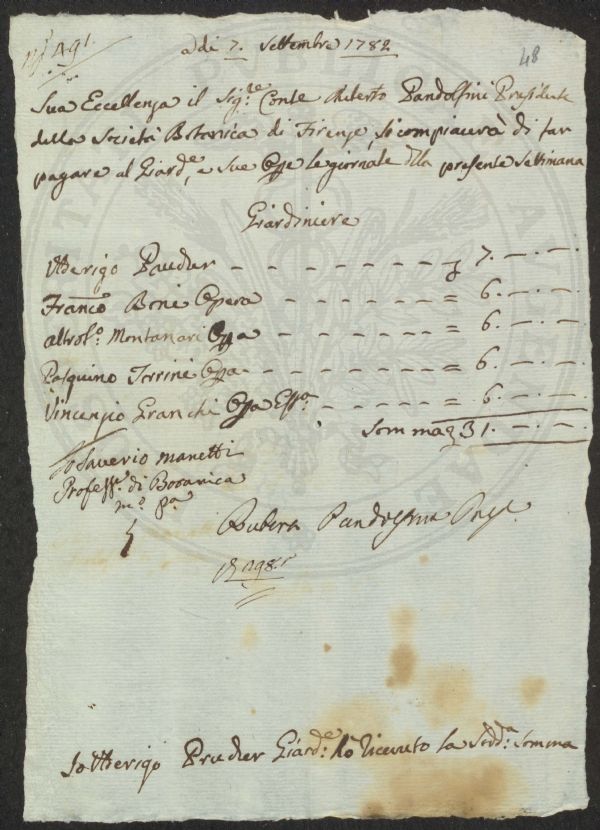 adi 7. Settembre 1782
48
Sua Eccellenza il Sig.re Conte Ruberto Pandolfini Presidente
della Società Botanica di Firenze, si compiacerà di far
pagare al Giard.e, e sue Opre le giornate della presente Settimana
Giardiniere
Uderigo Prudier - - - - - - - 7. - . - .
Franco. Boni Opera - - - - - - = 6. - . - .
Montanari Opa - - - - - - = 6. - . - .
Pasquino Torrini Opa - - - - - - = 6. - . - .
Vincenzio Granchi Opa - - - - - = 6. - . - .
Somma 31. - . - .
Io Saverio Manetti
Profess.e di Botanica
mo. pa.
Rubero Pandolfini Pres.
Io Uderigo Prudier Giard.e hò riceuto la Sudd.a Somma